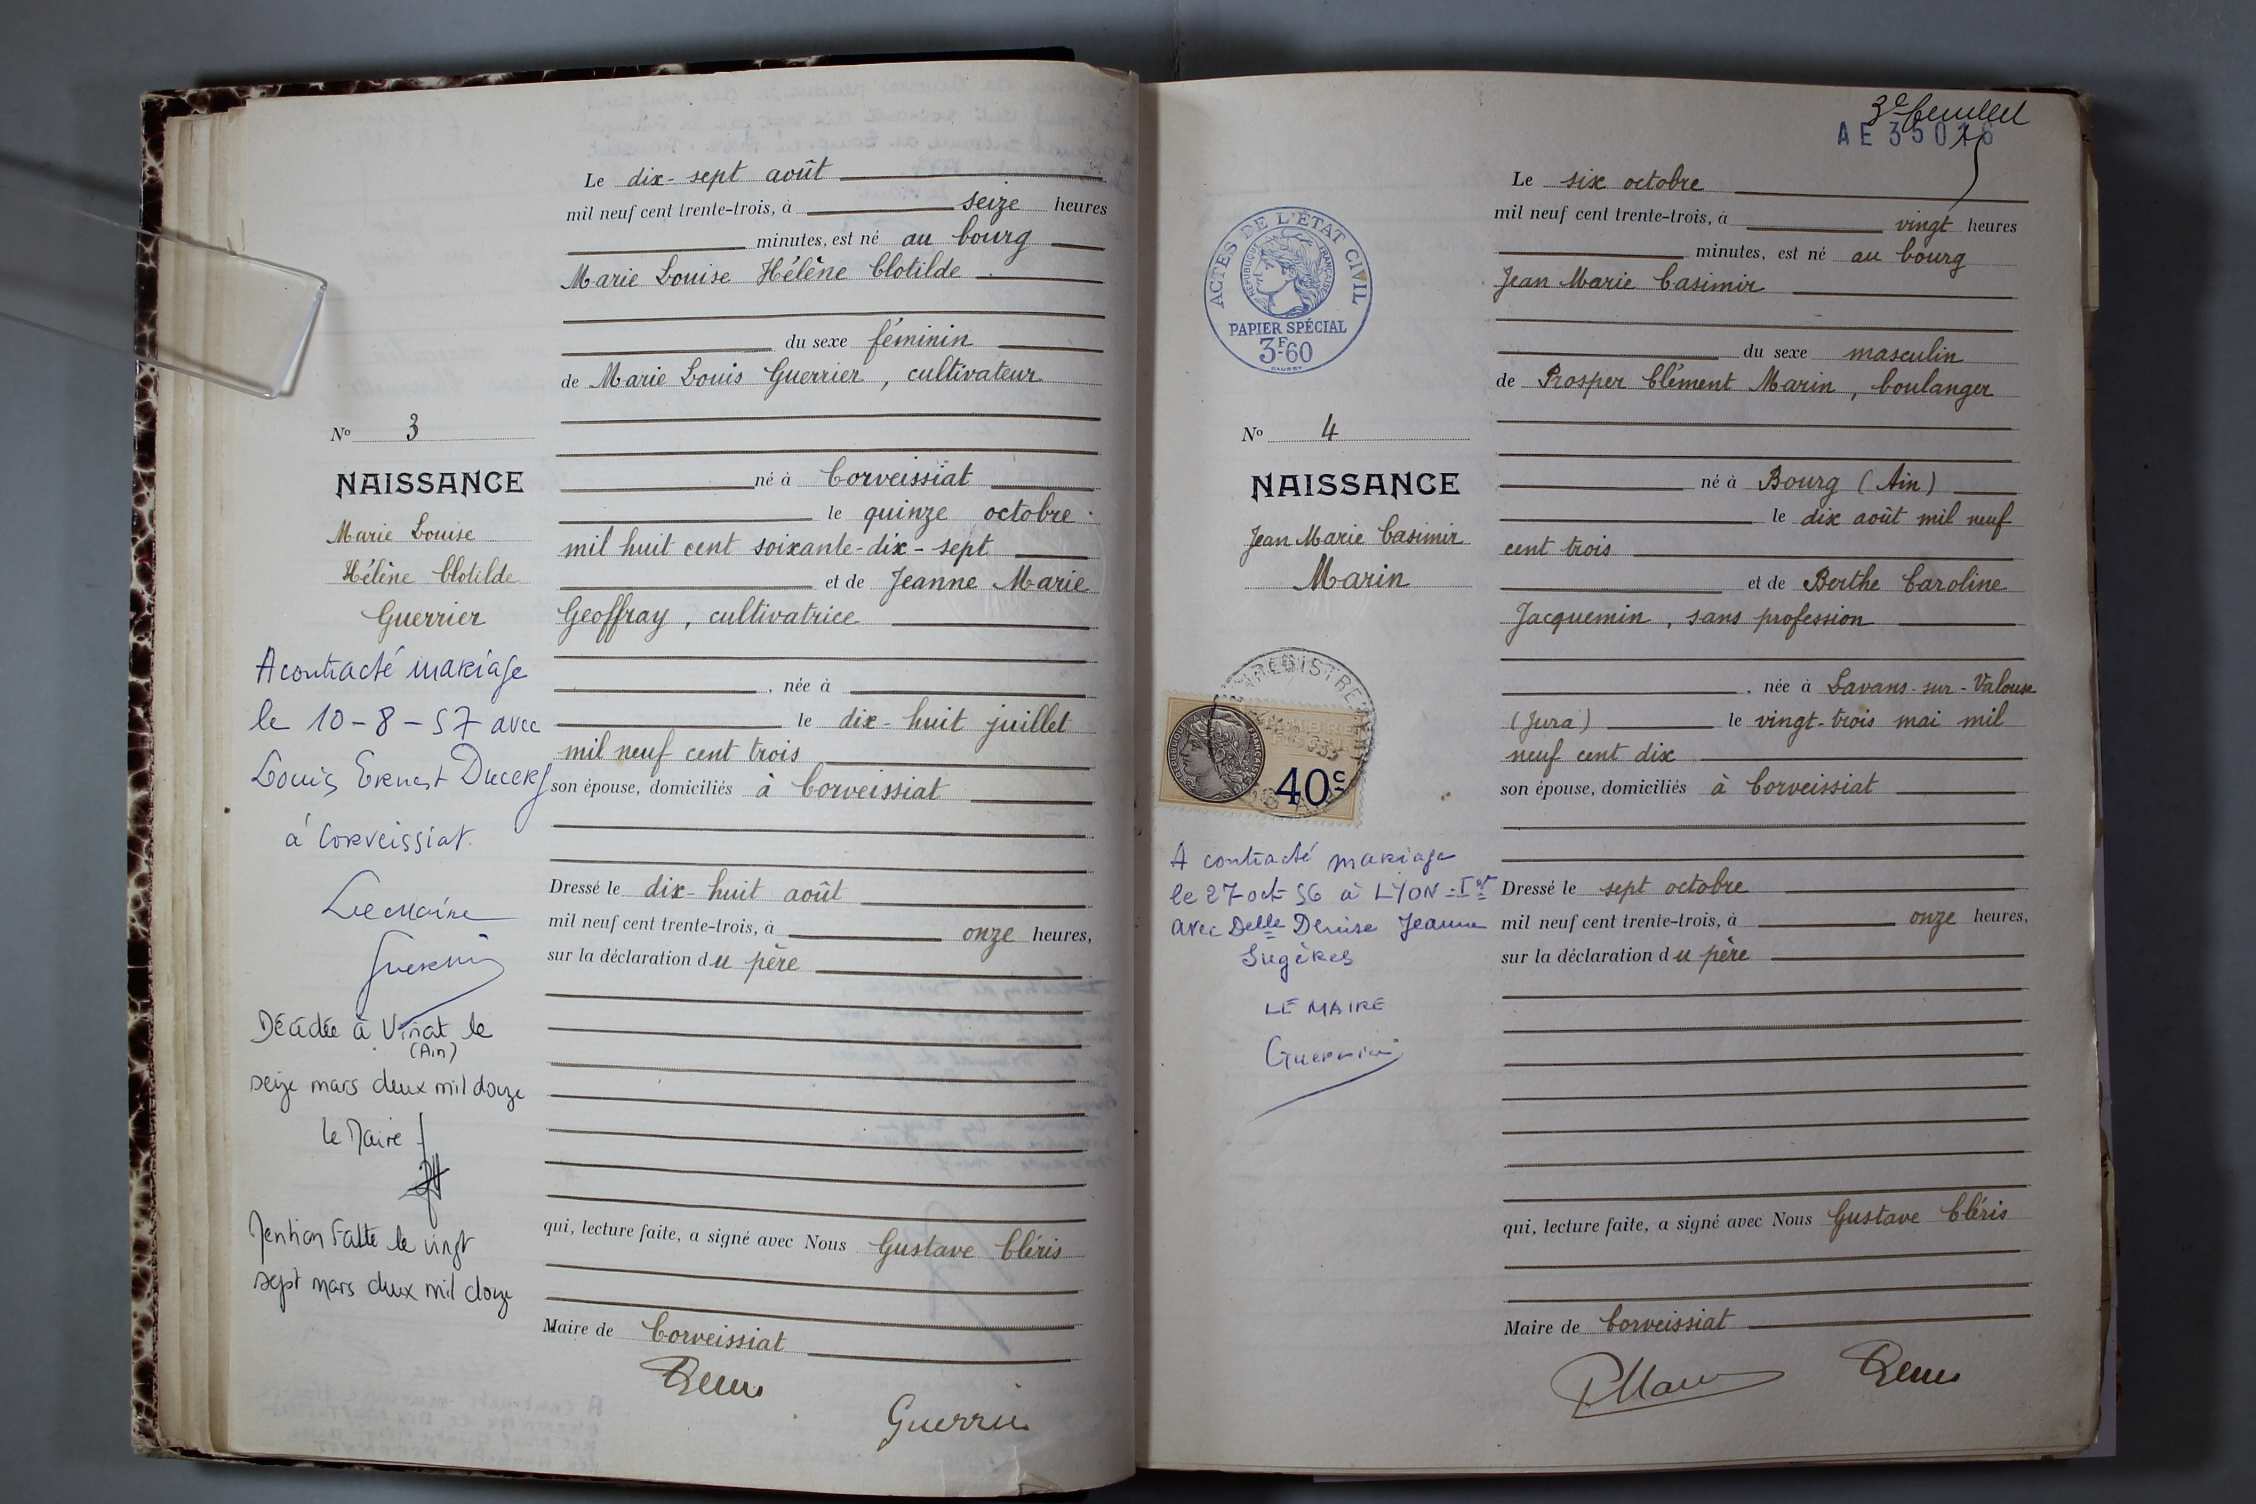 Le dix-sept août
mil neuf cent trente-trois, à seize heures
minutes, est né au bourg
Marie Louise Hélène Clotilde
du sexe féminin
de Marie Louis Guerrier, cultivateur
né à Corveissiat
le quinze octobre
mil huit cent soixante-dix-sept
et de Jeanne Marie
Geoffray, cultivatrice
, née à
le dix-huit juillet
mil neuf cent trois
son épouse, domiciliés à Corveissiat
Dressé le dix-huit août
mil neuf cent trente-trois, à onze heures,
sur la déclaration du père
qui, lecture faite, a signé avec Nous Gustave Cléris
Maire de Corveissiat
Guerrier
No 3
NAISSANCE
Marie Louise
Hélène Clotilde
Guerrier
A contracté mariage
le 10-8-57 avec
Louis Ernest
à Corveissiat.
Le Maire
Décédée à le
(Ain)
seize mars deux mil douze
Le Maire
Mention faite le vingt
sept mars deux mil douze
3e feuillet
AE 35016
ACTES DE L'ÉTAT CIVIL
RÉPUBLIQUE FRANÇAISE
PAPIER SPÉCIAL
3F-60
No 4
NAISSANCE
Jean Marie Casimir
Marin
40c
A contracté mariage
le 27 oct 56 à LYON-Ier
avec Delle Denise Jeanne
LE MAIRE
Le six octobre
mil neuf cent trente-trois, à vingt heures
minutes, est né au bourg
Jean Marie Casimir
du sexe masculin
de Prosper Clément Marin, boulanger
né à Bourg (Ain)
le dix août mil neuf
cent trois
et de Berthe Caroline
Jacquemin, sans profession
, née à Lavans-sur-Valouse
(Jura) le vingt-trois mai mil
neuf cent dix
son épouse, domiciliés à Corveissiat
Dressé le sept octobre
mil neuf cent trente-trois, à onze heures,
sur la déclaration du père
qui, lecture faite, a signé avec Nous Gustave Cléris
Maire de Corveissiat